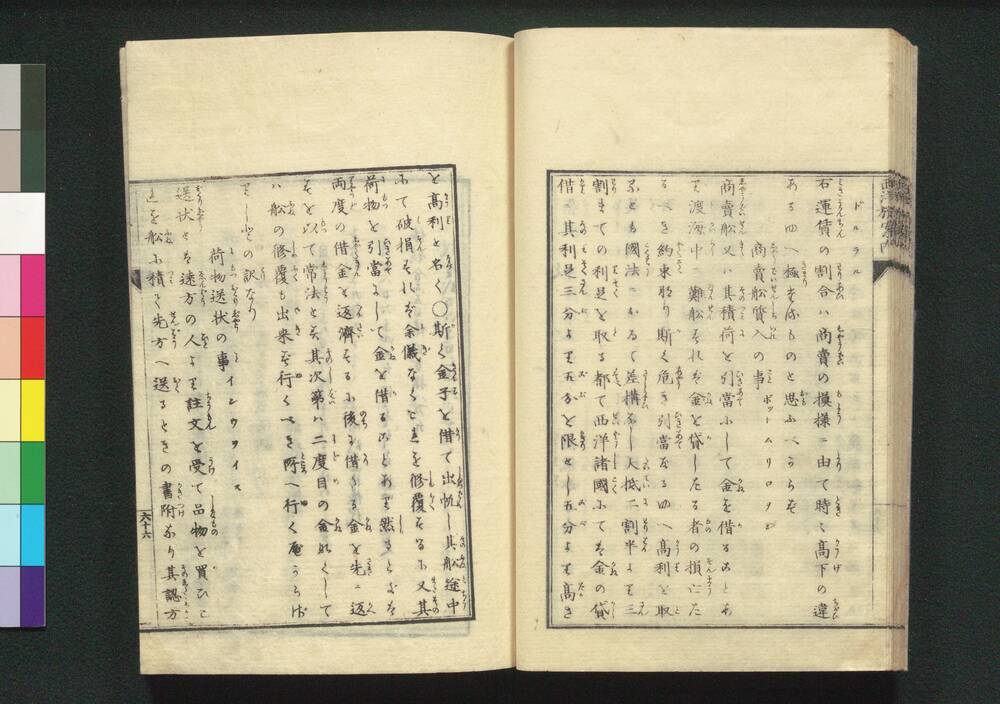 ドルラル
右運賃の割合ハ商賣の摸様ニ由て時々高下の違
あるゆへ極まりたるものと思ふべからず
商賣舩質入の事 ボットムリロヲ
商賣舩又ハ其積荷を引當にして金を借ることあ
り渡海中ニ難舩すれバ金を貸したる者の損亡た
るべきを約束取り斯く危き引當なるゆへ高利を取
るとも國法ニかゝる差構なし大抵二割半より三
割までの利足を取る都て西洋諸國にてハ金の貸
借ニ其利足三分より五分を限とし五分より高き
を高利と名く〇斯く金子を借て出帆し其舩途中
にて破損すれバ余儀なくこれを修覆するに又其
荷物を引當にして金を借ることあり然るときは
両度の借金を返濟するに後に借りたる金を先ニ返
すを以て常法とす其次第ハ二度目の金なくして
ハ舩の修覆も出来ず行くべき所へ行く能ハざ
りし故との訳なり
荷物送状の事 インヲイス
送状とハ遠方の人より註文を受て品物を買ひこ
れを舩に積て先方へ送るときの書附なり其認方
六十六